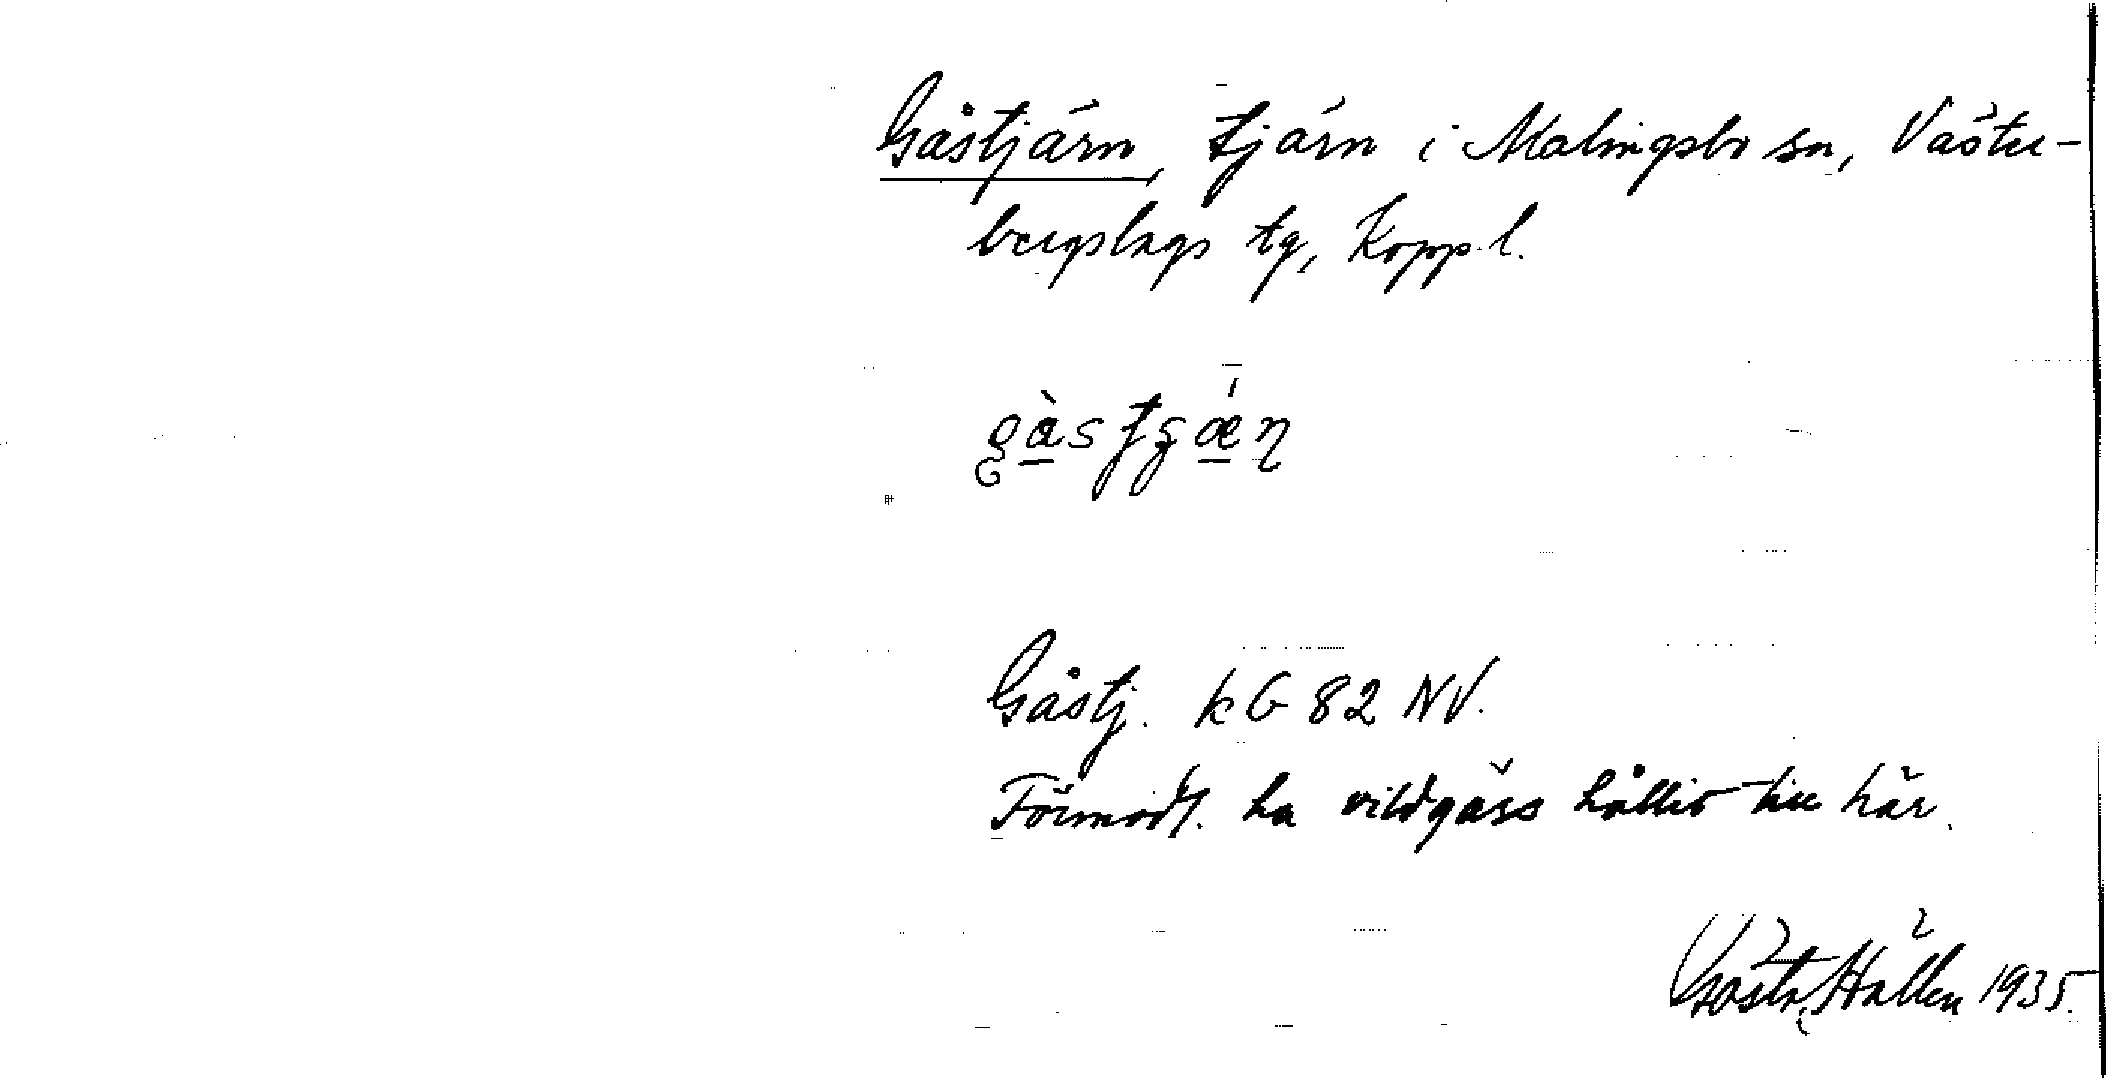 Gåstjärn, tjärn i Malingsbo sn, Väster-
bergslags tg, Koppl.
Gåstj. kG 82 NV.
Förmodl. ha vildgäss hållit till här.
Gösta Hállén 1935.